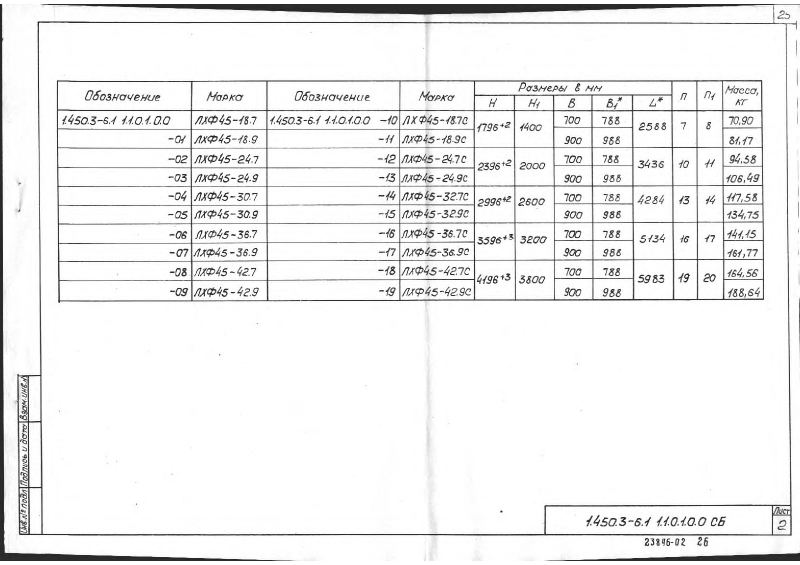 25
Обозначение Марка Обозначение Марка Размеры в мм n n1 Масса, кг
H H1 B B1* L*
1.450.3-6.1 1.1.0.1.0.0 ЛХФ45-18.7 1.450.3-6.1 1.1.0.1.0.0 -10 ЛХФ45-18.7С 1796+2 1400 700 788 2588 7 8 70,90
-01 ЛХФ45-18.9 -11 ЛХФ45-18.9С 900 988 81,17
-02 ЛХФ45-24.7 -12 ЛХФ45-24.7С 2396+2 2000 700 788 3436 10 11 94,58
-03 ЛХФ45-24.9 -13 ЛХФ45-24.9С 900 988 106,49
-04 ЛХФ45-30.7 -14 ЛХФ45-32.7С 2996+2 2600 700 788 4284 13 14 117,58
-05 ЛХФ45-30.9 -15 ЛХФ45-32.9С 900 988 134,75
-06 ЛХФ45-36.7 -16 ЛХФ45-36.7С 3596+3 3200 700 788 5134 16 17 141,15
-07 ЛХФ45-36.9 -17 ЛХФ45-36.9С 900 988 161,77
-08 ЛХФ45-42.7 -18 ЛХФ45-42.7С 4196+3 3800 700 788 5983 19 20 164,56
-09 ЛХФ45-42.9 -19 ЛХФ45-42.9С 900 988 188,64
Инв.№ подл. Подпись и дата Взам.инв.№
1.450.3-6.1 1.1.0.1.0.0 СБ
Лист
2
23846-02 26